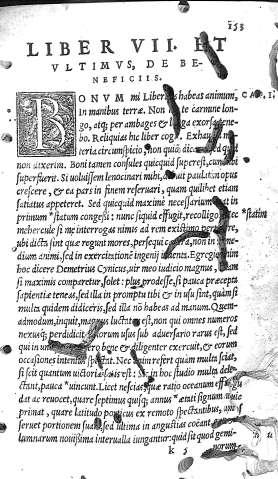 153
LIBER VII. ET
VLTIMVS, DE BE-
NEFICIIS.
BONVM mi Liberalis habeas animum, CAP. I.
In manibus terræ. Non te carmine lon-
go, atq; per ambages & longa exorsa tene-
bo. Reliquias hic liber cogit. Exhau
teria circunspicio, non quid dicam, sed quid
non dixerim. Boni tamen consules quicquid superest, cum tibi
superfuerit. Si uoluissem lenocinari mihi, debuit paulatim opus
crescere, & ea pars in finem reseruari, quam quilibet etiam
satiatus appeteret. Sed quicquid maxime necessarium erat in
primum *statum congessi: nunc siquid effugit, recolligo. Nec *statim
mehercule si me interrogas nimis ad rem existimo pertinere,
ubi dicta sint quæ regunt mores, persequi cætera, non in reme-
dium animi, sed in exercitationem ingenij inuenta. Egregie enim
hoc dicere Demetrius Cynicus, uir meo iudicio magnus, etiam
si maximis comparetur, solet: plus prodesse, si pauca præcepta
sapientiæ teneas, sed illa in promptu tibi & in usu sint, quàm si
multa quidem didiceris, sed illa non habeas ad manum. Quem-
admodum, inquit, magnus luctator est, non qui omnes numeros
nexusq; perdidicit quorum usus sub aduersario rarus est, sed
qui in uno aut altero bene & diligenter exercuit, & eorum
occasiones intentus spectat. Nec enim refert quàm multa sciat,
si scit quantum uictoriæ satis est: Sic in hoc studio multa dele-
ctant, pauca *uincunt. Licet nescias, quæ ratio oceanum effun-
dat ac reuocet, quare septimus quisq; annus *ætati signum
primat, quare latitudo porticus ex remoto spectantibus, non
seruet portionem suam, sed ultima in angustias coëant, &
lumnarum nouissima interualla iungantur: quid sit quod gemi-
k 5 norum